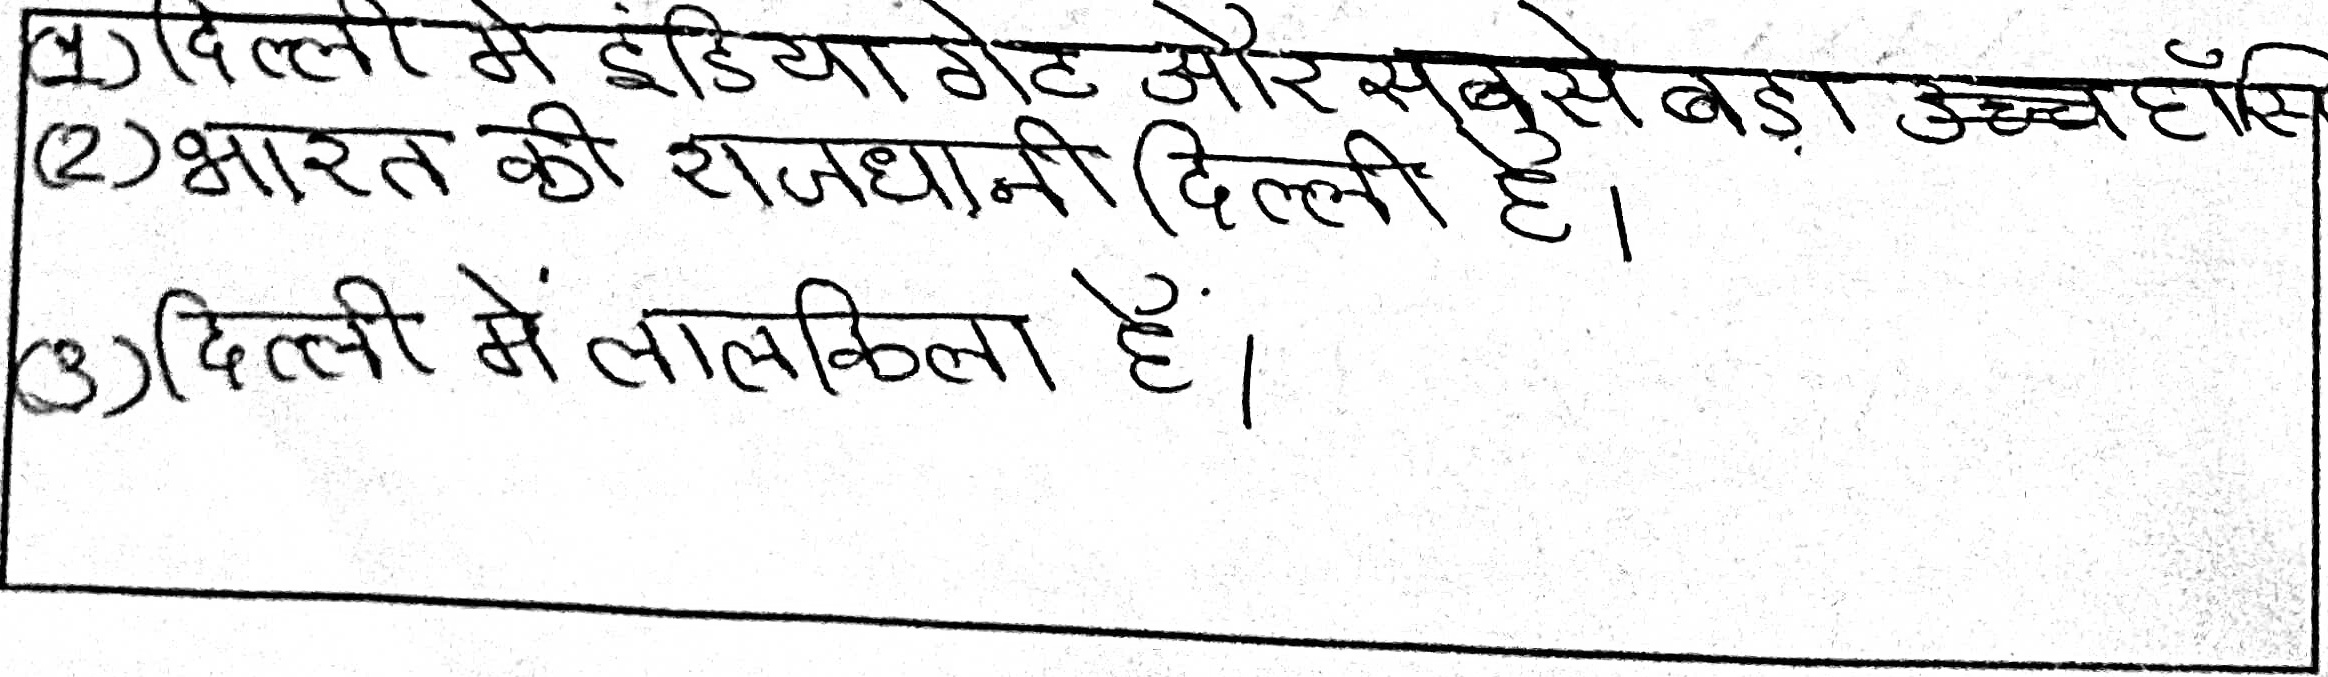 (1) दिल्ली में इंडिया गेट और सबसे बड़ा उच्च हॉसि
(2) भारत की राजधानी दिल्ली है।
(3) दिल्ली में लालकिला हैं।